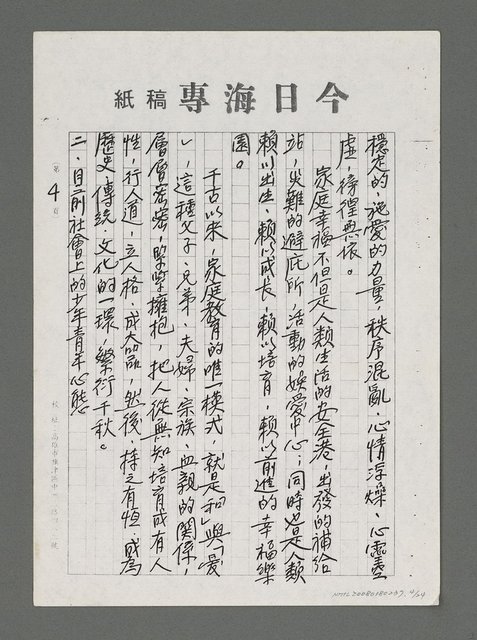 今日海專 稿紙
穩定的施愛的力量，秩序混亂、心情浮燥、心靈空
虛，徬徨無依。
家庭幸福不但是人類生活的安全港，出發的補給
站，災難的避庇所，活動的娛愛中心；同時也是人類
賴以出生、賴以成長、賴以培育，賴以前進的幸福樂
園。
千古以來，家庭教育的唯一模式，就是「和」與「愛
」，這種父子、兄弟、夫婦、宗族、血親的關係，
層層密密，緊緊擁抱，把人從無知培育成有人
性，行人道，立人格，成大器，然後，持之有恒，成為
歷史、傳統、文化的一環，繁衍千秋。
二、目前社會上的少年青年心態
第4頁
NMTL20080180207 4/24